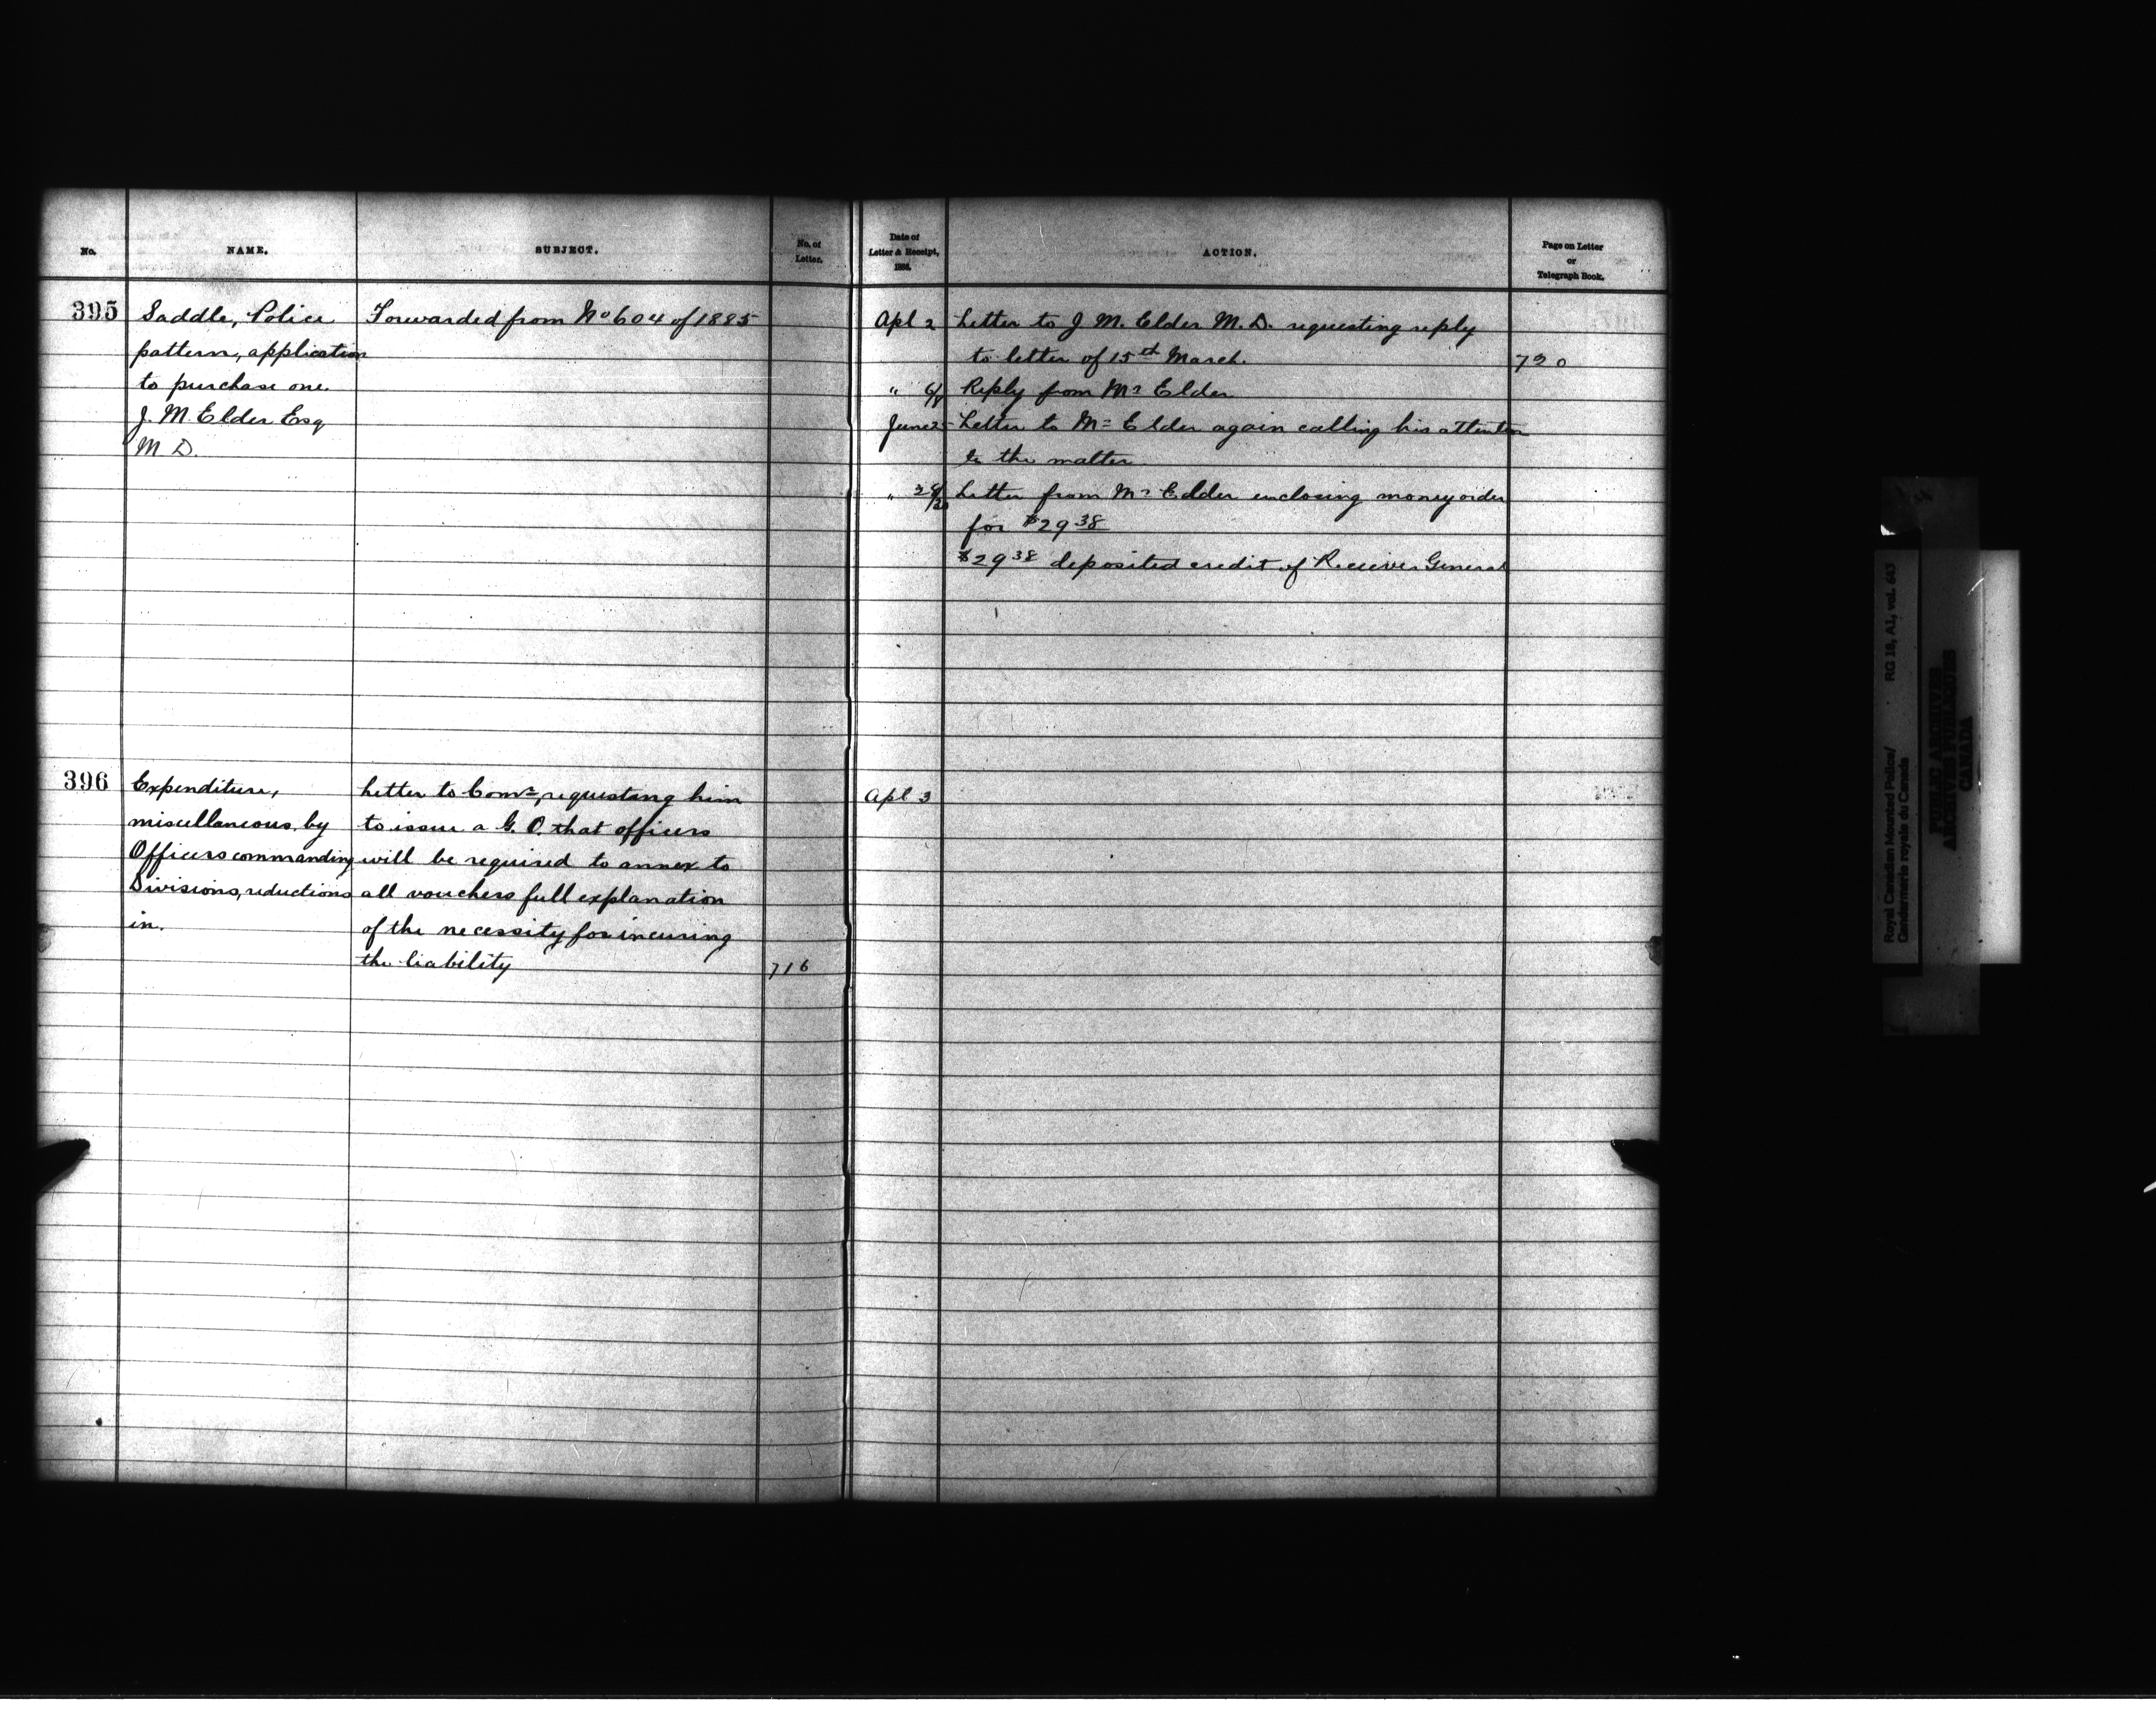 No.
NAME.
SUBJECT.
No. of
Letter.
395
Saddle, Police
pattern, application
to purchase one.
J. M. Elder Esq
M D.
Forwarded from No 604 of 1885
396
Expenditure,
miscellaneous by
Officers commanding
Divisions, reductions
in.
Letter to Comr, requestang him
to issue a G. O. that officers
will be required to annex to
all vouchers full explanation
of the necessity for incuring
the liability
716
Date of
Letter & Receipt,
1886.
ACTION.
Page on Letter
or
Telegraph Book.
Apl 2 Letter to J M. Elder M. D. requesting reply
to letter of 15th March. 720
" 6/8 Reply from Mr Elder
June 25 Letter to Mr Elder again calling his attention
to the matter
" 28/30 Letter from Mr Elder enclosing money order
for $29 38
$29 38 deposited credit of Receiver General
Apl 3
Royal Canadian Mounted Police/
Gendarmerie royale du Canada
RG 18, A1, vol. 643
PUBLIC ARCHIVES
ARCHIVES PUBLIQUES
CANADA